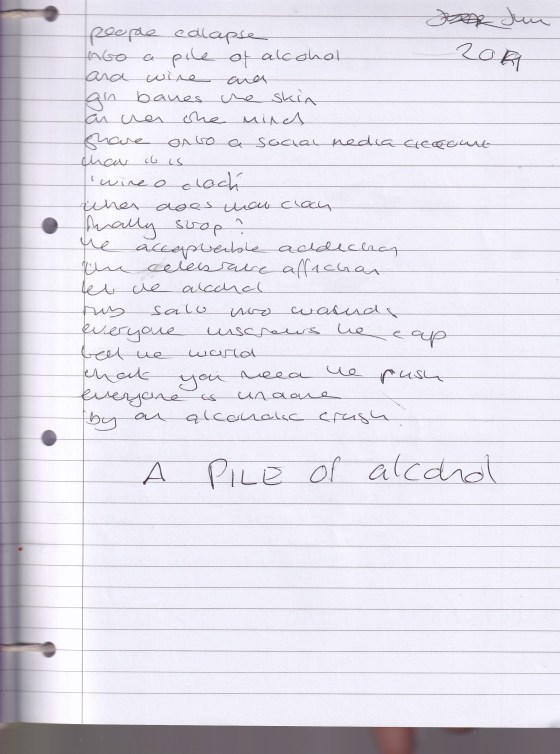 Jun
2019
people collapse
into a pile of alcohol
and wine and
gin bathes the skin
the mind
share onto a social media account
that it is
'wine o clock'
when does that clock
finally stop?
the acceptable addiction
the celebrate affliction
let the alcohol
rub salt into wounds
everyone unscrews the cap
tell the world
that you need the push
everyone is undone
by an alcoholic crush.
A PILE of alcohol